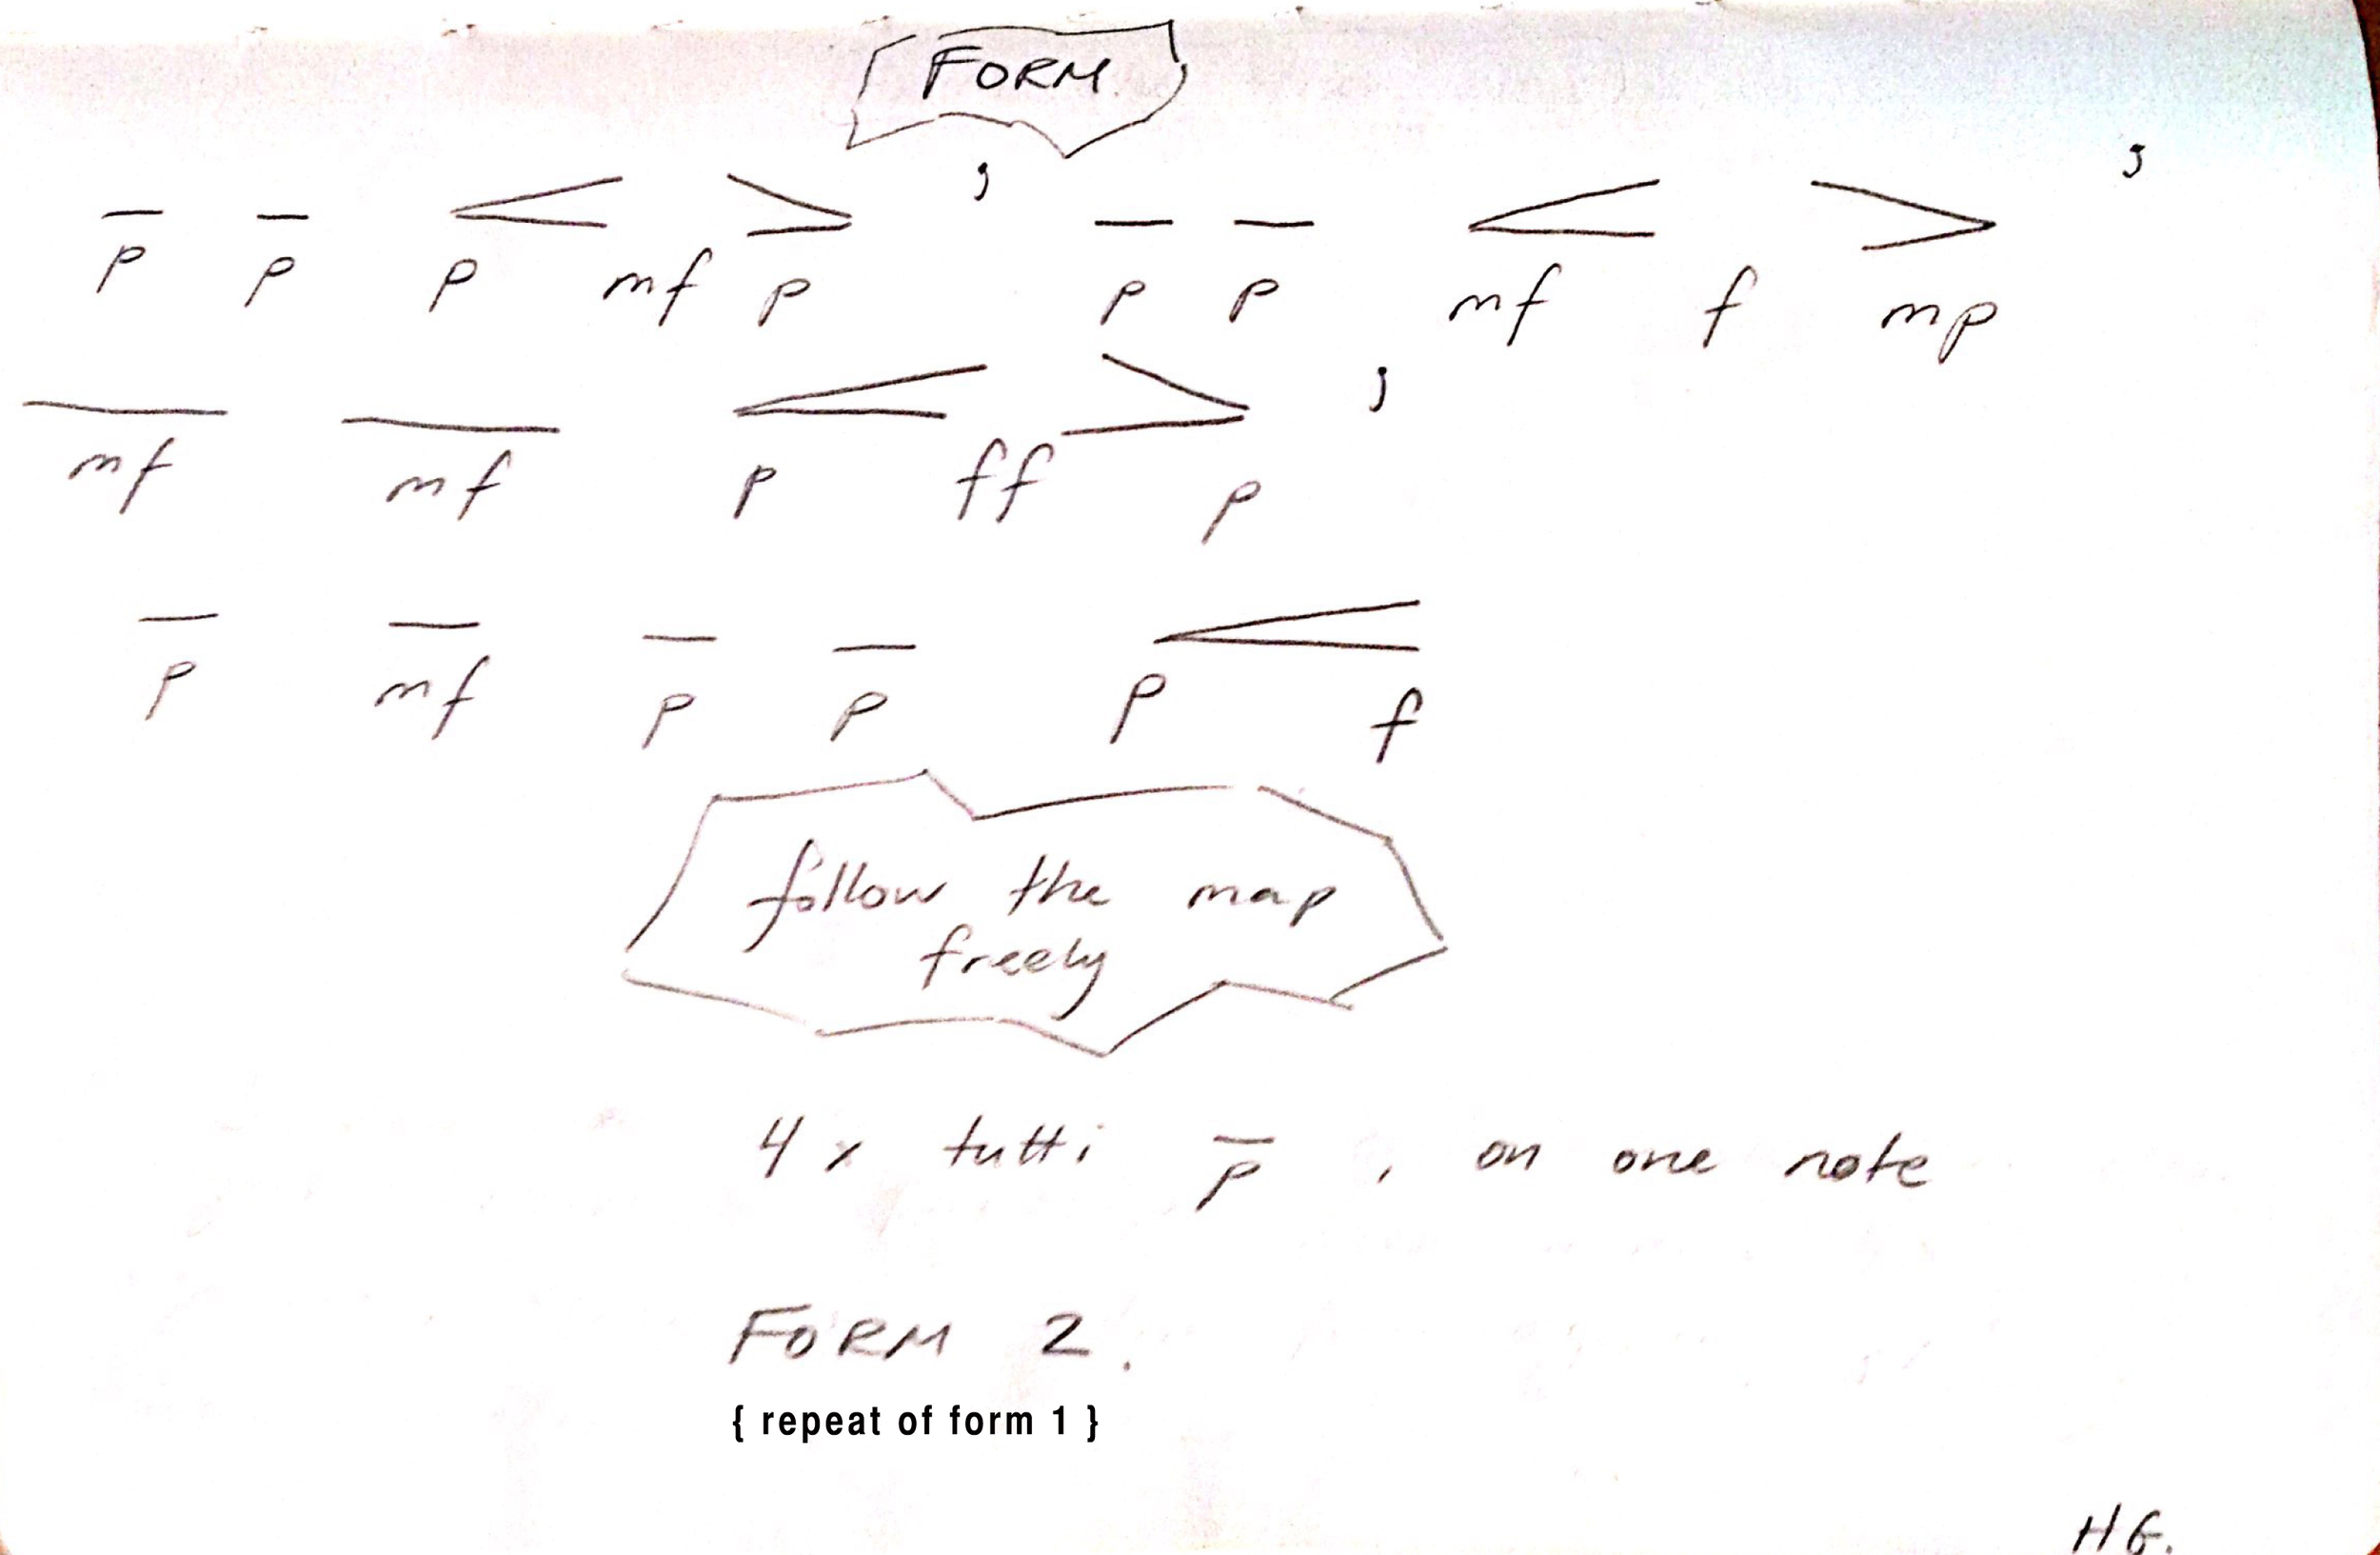 FORM
p p p mf p , p p mf f mp ,
mf mf p ff p ,
p mf p p p f
follow the map
freely
4x tutti p , on one note
FORM 2.
{ repeat of form 1 }
HG.